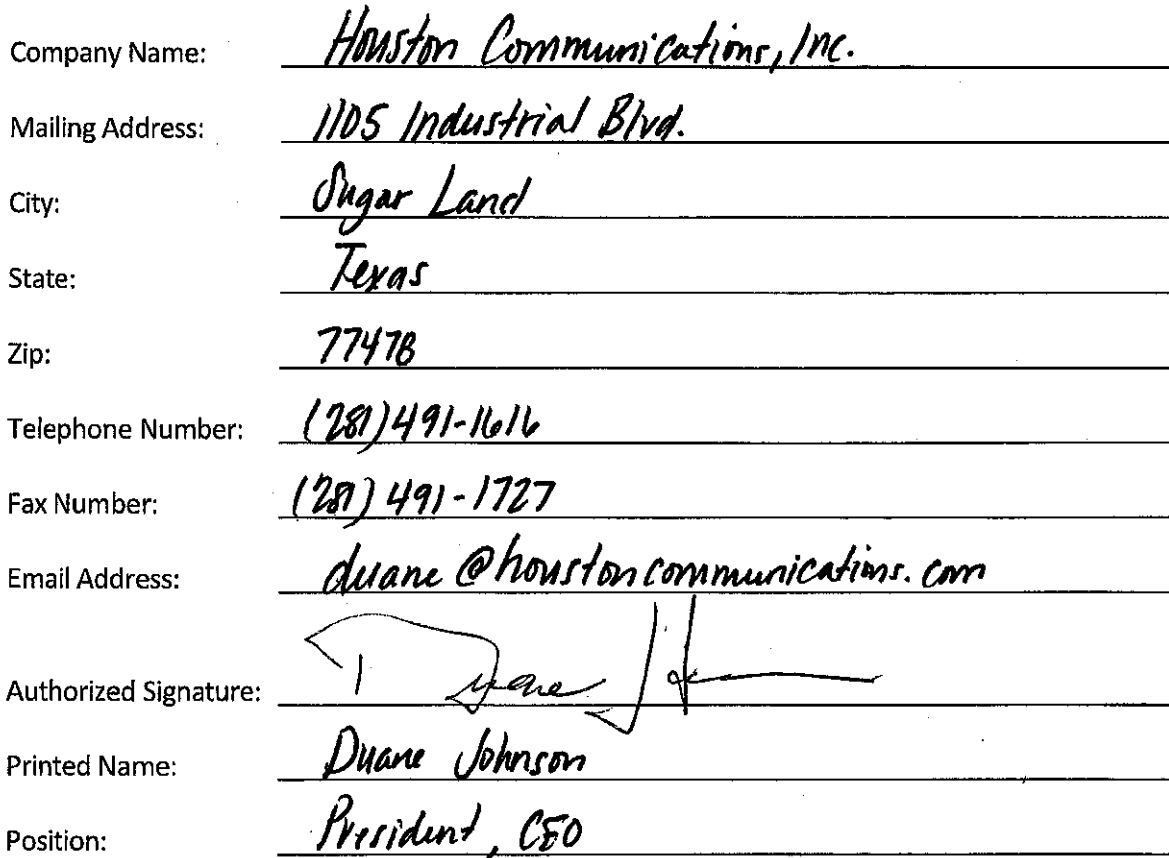 Company Name: Houston Communications, Inc.
Mailing Address: 1105 Industrial Blvd.
City: Sugar Land
State: Texas
Zip: 77478
Telephone Number: (281)491-1616
Fax Number: (281) 491-1727
Email Address: duane@houstoncommunications.com
Authorized Signature: Duane J
Printed Name: Duane Johnson
Position: President, CEO